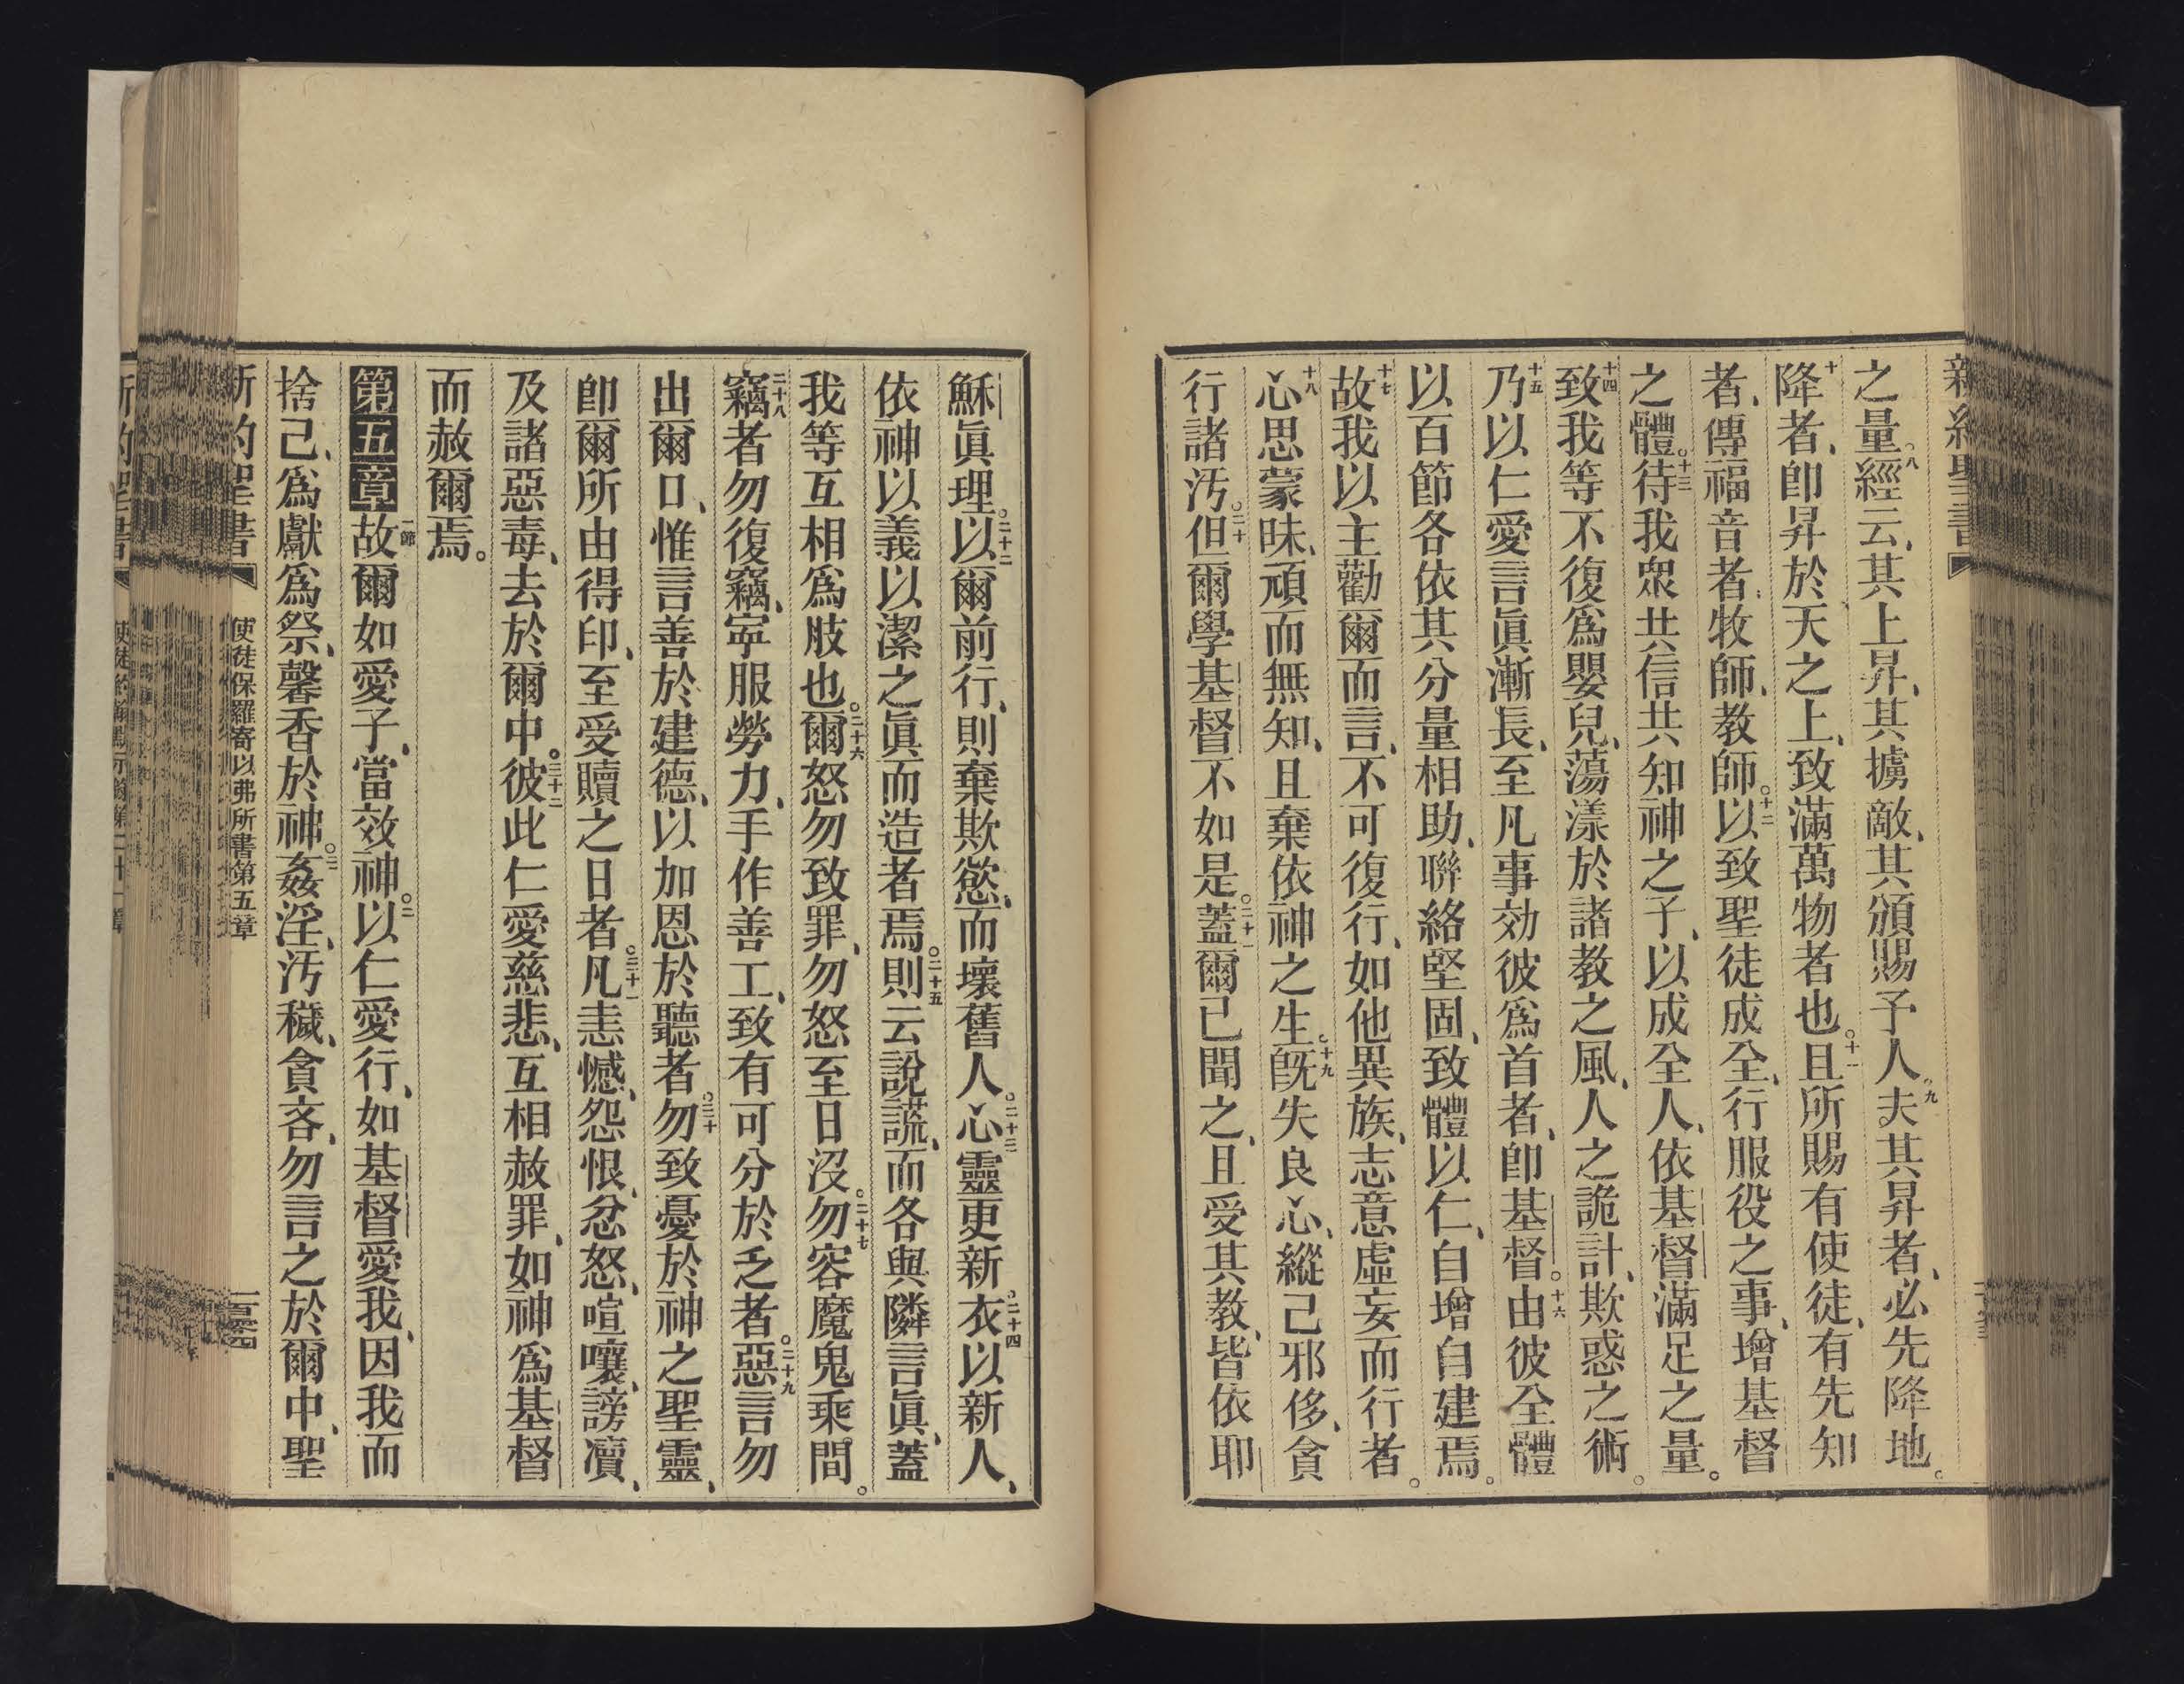 之量。八經云、其上昇、其擄敵、其頒賜予人。九夫其昇者、必先降地。
十降者、卽昇於天之上、致滿萬物者也。十一且所賜有使徒、有先知
者、傳福音者、牧師、教師。十二以致聖徒成全、行服役之事、增基督
之體。十三待我衆共信共知神之子、以成全人、依基督滿足之量。
十四致我等不復爲嬰兒、蕩漾於諸教之風、人之詭計、欺惑之術。
十五乃以仁愛言眞漸長、至凡事效彼爲首者、卽基督。十六由彼全體
以百節各依其分量相助、聯絡堅固、致體以仁、自增自建焉。
十七故我以主勸爾而言、不可復行、如他異族、志意虛妄而行者。
十八心思蒙昧、頑而無知、且棄依神之生。十九旣失良心、縱己邪侈、貪
行諸汚。二十但爾學基督不如是。二十一蓋爾已聞之、且受其教、皆依耶
穌眞理。二十二以爾前行、則棄欺慾、而壞舊人。二十三心靈更新。二十四衣以新人、
依神以義以潔之眞而造者焉。二十五則云說謊、而各與隣言眞、蓋
我等互相爲肢也。二十六爾怒勿致罪、勿怒至日沒。二十七勿容魔鬼乘間。
二十八竊者勿復竊、寧服勞力、手作善工、致有可分於乏者。二十九惡言勿
出爾口、惟言善於建德、以加恩於聽者。三十勿致憂於神之聖靈、
卽爾所由得印、至受贖之日者。三十一凡恚憾、怨恨、忿怒、喧嚷、謗讟、
及諸惡毒、去於爾中。三十二彼此仁愛慈悲、互相赦罪、如神爲基督
而赦爾焉。
第五章 一節故爾如愛子、當效神。二以仁愛行、如基督愛我、因我而
捨己、爲獻爲祭、馨香於神。三姦淫、汚穢、貪吝、勿言之於爾中、聖
新約聖書 使徒保羅寄以弗所書第五章